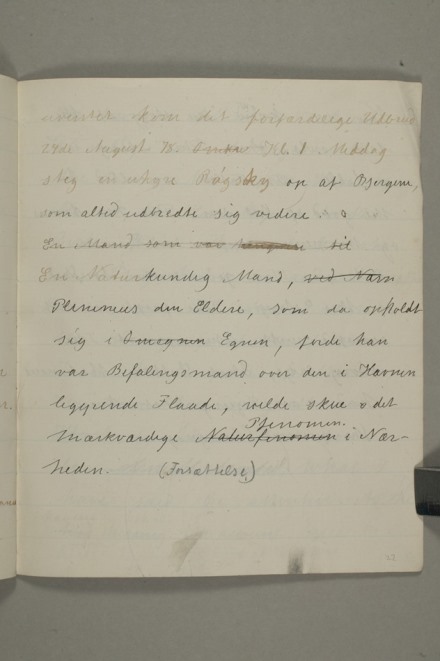 uventet kom det forfærdelige Udbrud
24de August 78. Omkr Kl. 1 Middag
steg en uhyre Røgsky op af Bjergene,
som altid udbredte sig videre.
En Mand som var til
En Naturkundig Mand, ved Navn
Plinimus den Eldere, som da opholdt
sig i Omegnen Egnen, fordi han
var Befalingsmand over den i Havnen
liggende Flaade, vilde skue det
Phenomen.
mærkværdige Naturfenomen i Nær-
heden. (Forsættelse)